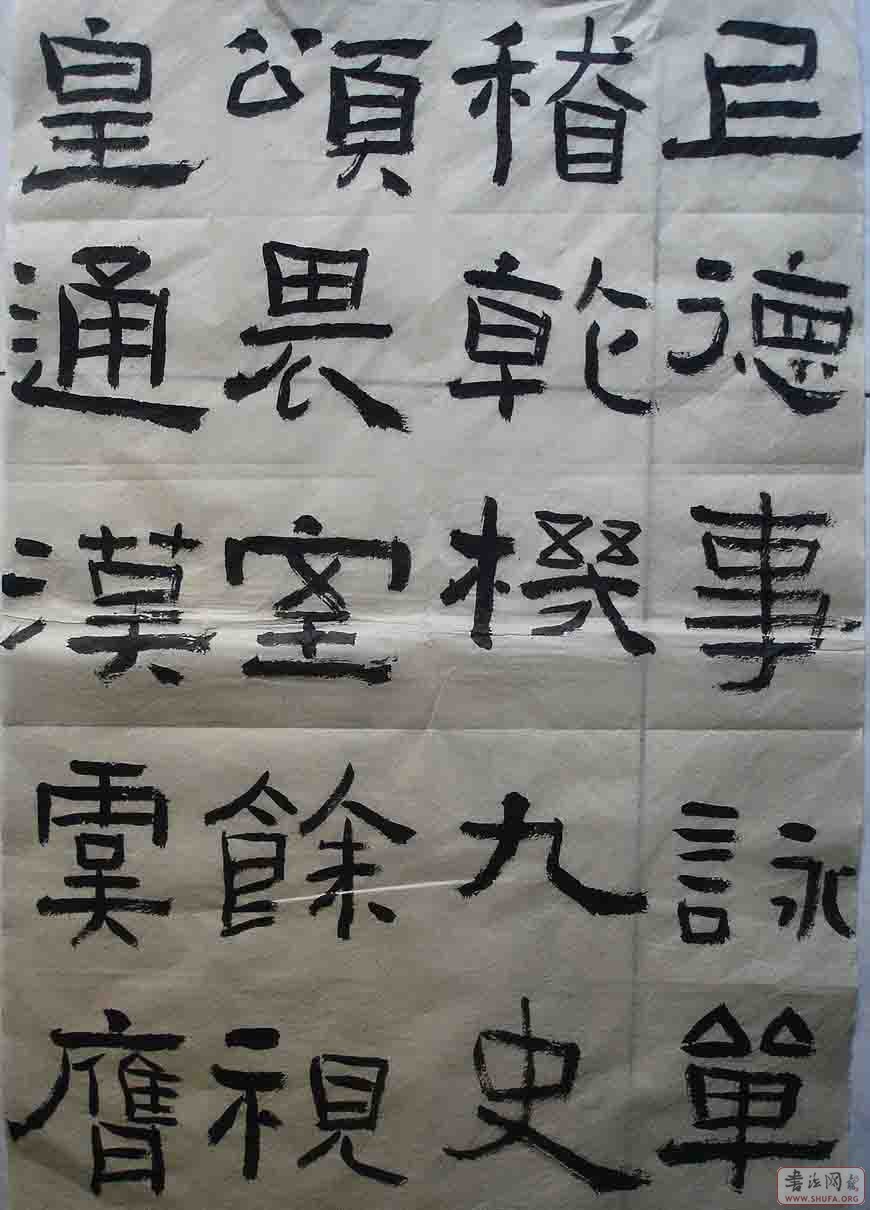 丘德事詠單
稽乾機九史
頌畏室餘視
皇通漢虞膺
書法网
WWW.SHUFA.ORG